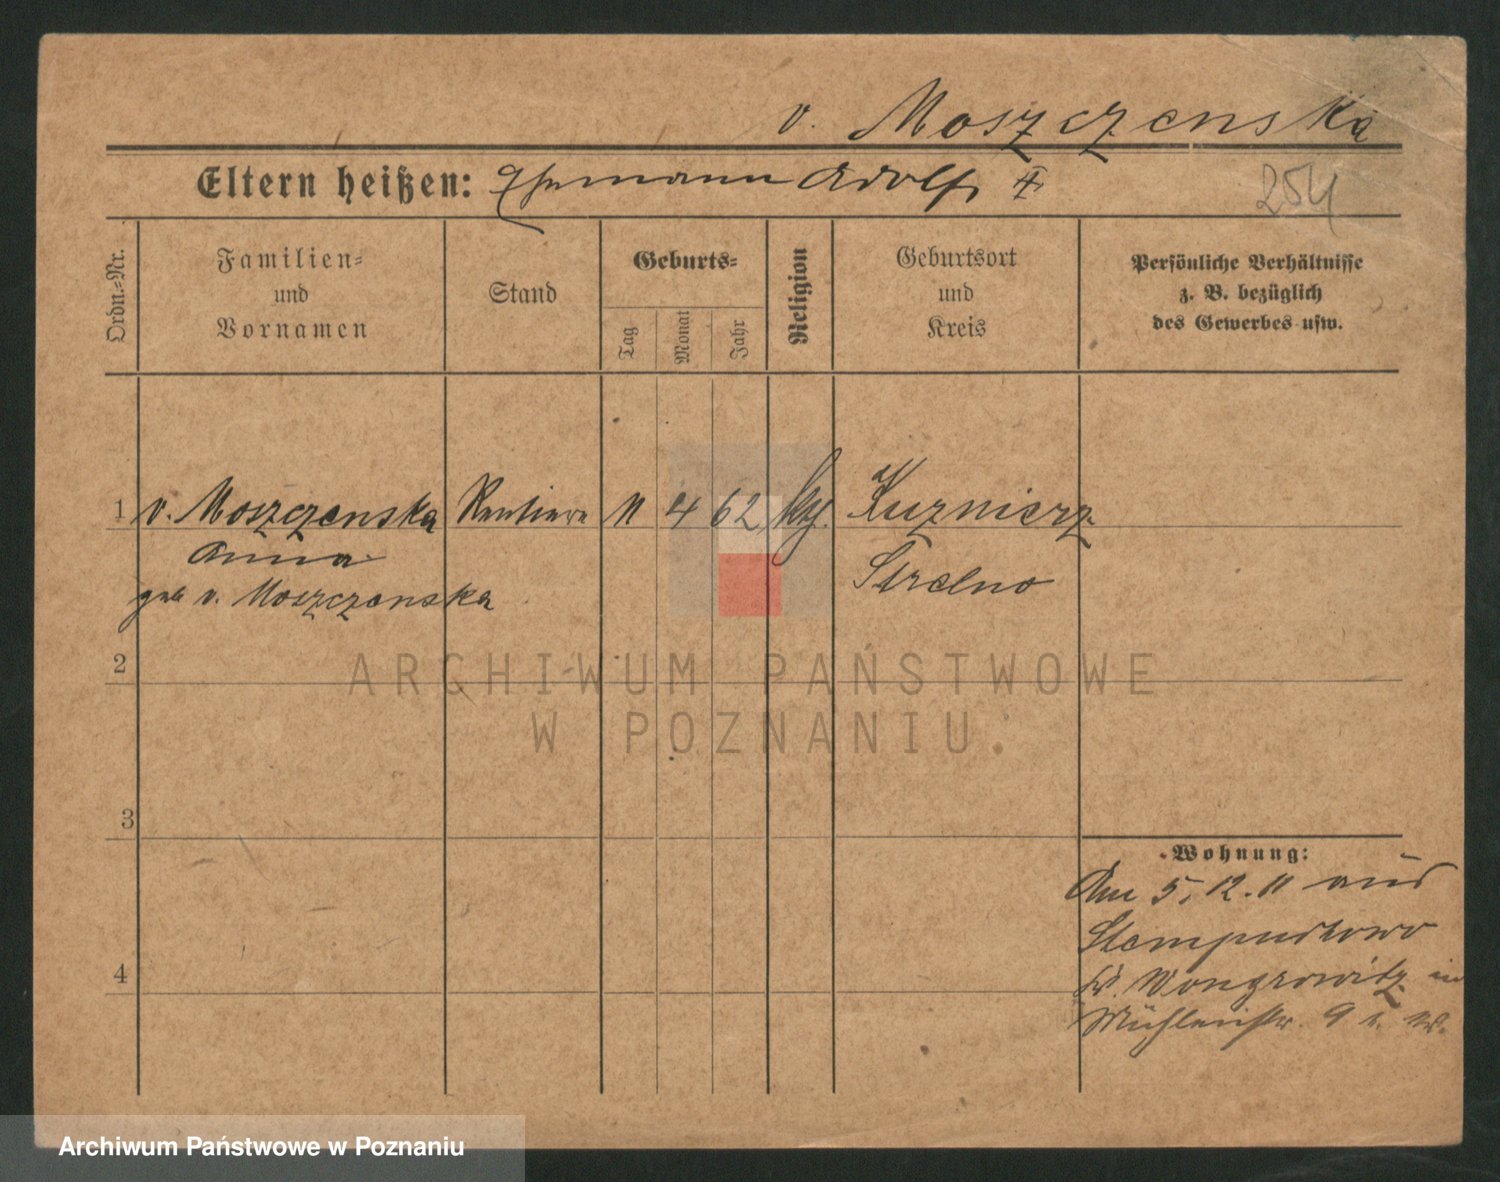 v. Moszczenska
Eltern heißen: Ehemann Adolf ‡
254
Ordn.-Nr.
Familien-
und
Vornamen
Stand
Geburts-
Tag
Monat
Jahr
Religion
Geburtsort
und
Kreis
Persönliche Verhältnisse
z. B. bezüglich
des Gewerbes usw.
1 v. Moszczenska Rentiere 11 4 62 kth. Kuznierz
Anna Strelno
geb v. Moszczenska
2
ARCHIWUM PAŃSTWOWE
W POZNANIU.
3
Wohnung:
Am 5. 12. 11 aus
Stempuchowo
4
Kr. Wongrowitz in
Mühlenstr. 9
Archiwum Państwowe w Poznaniu